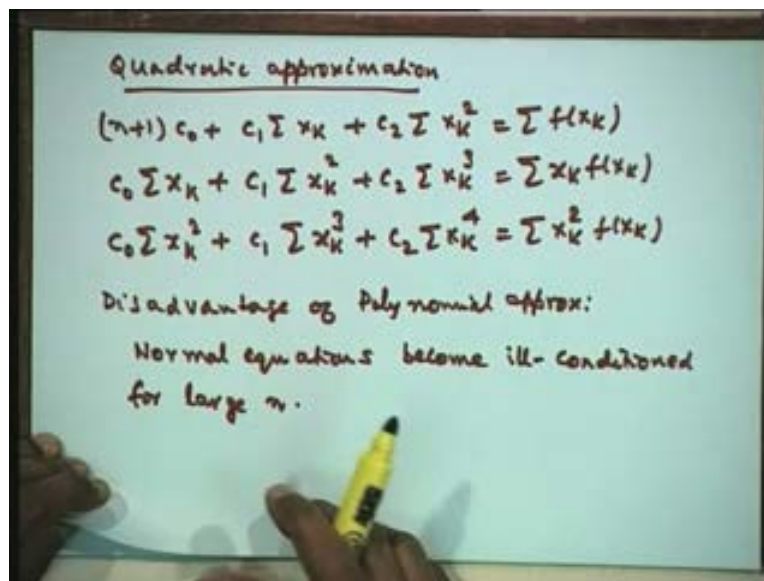 Quadratic approximation
(n+1) c₀ + c₁ Σ xₖ + c₂ Σ xₖ² = Σ f(xₖ)
c₀ Σ xₖ + c₁ Σ xₖ² + c₂ Σ xₖ³ = Σ xₖ f(xₖ)
c₀ Σ xₖ² + c₁ Σ xₖ³ + c₂ Σ xₖ⁴ = Σ xₖ² f(xₖ)
Disadvantage of Polynomial approx:
Normal equations become ill-conditioned
for large n.